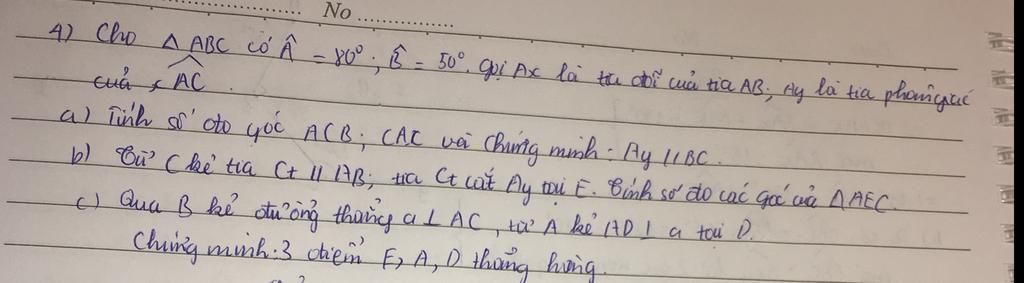 No ..............
4) Cho Δ ABC có Â = 80°; B̂ = 50°. Gọi Ax là tia đối của tia AB; Ay là tia phân giác
của xAC.
a) Tính số đo góc ACB; CAC và chứng minh: Ay // BC.
b) Từ C kẻ tia Ct // AB; tia Ct cắt Ay tại E. Tính số đo các góc của ΔAEC.
c) Qua B kẻ đường thẳng a ⊥ AC, từ A kẻ AD ⊥ a tại D.
Chứng minh: 3 điểm E, A, D thẳng hàng.